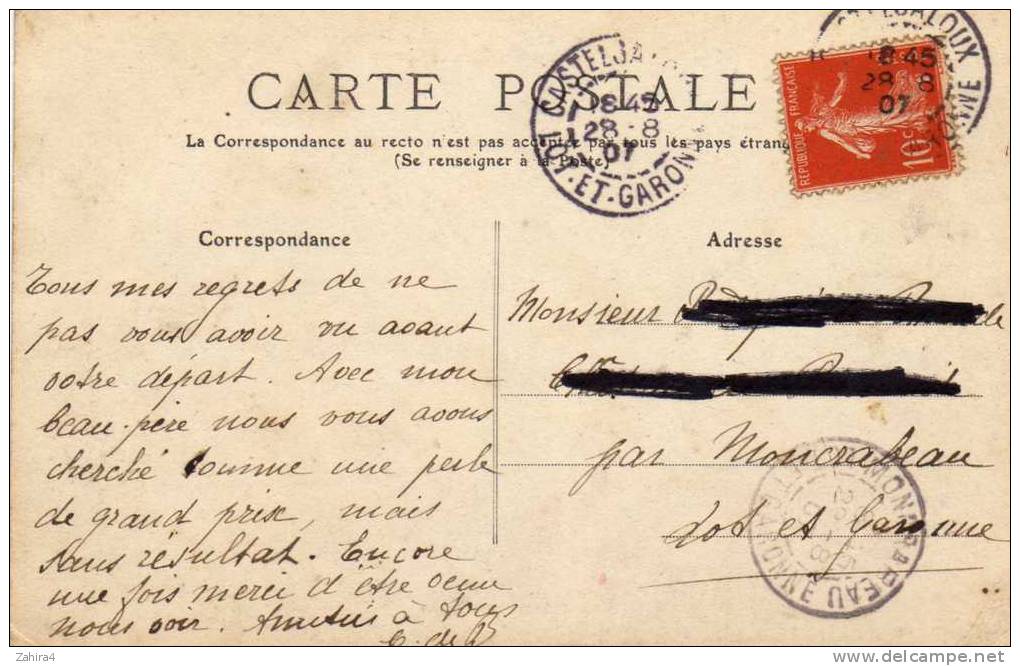 CARTE POSTALE
La Correspondance au recto n'est pas acceptée par tous les pays étran
(Se renseigner à la Poste)
CASTELJA
18 45
28 - 8
07
LOT-ET-GARON
ELJALOUX
8 45
28 8
07
NNE
REPUBLIQUE FRANÇAISE
10 c
Correspondance
Tous mes regrets de ne
pas vous avoir vu avant
votre départ. Avec mon
beau-père nous vous avons
cherché comme une perle
de grand prix, mais
sans résultat. Encore
une fois merci d'être venu
nous voir. Amitiés à tous
Adresse
Monsieur
de
par Moncrabeau
Lot et Garonne
MONCRABEAU
Zahira4
delcampe.net